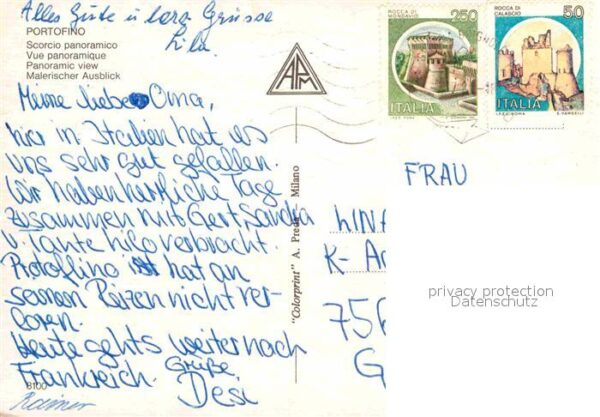 Alles Gute u. liebe Grüsse
Lila
PORTOFINO
Scorcio panoramico
Vue panoramique
Panoramic view
Malerischer Ausblick
Meine liebe Oma,
hier in Italien hat es
uns sehr gut gefallen.
Wir haben herrliche Tage
zusammen mit Gert, Sandra
u. Tante Lilo verbracht.
Portofino hat an
seinen Reizen nicht ver-
loren.
Heute gehts weiter nach
Frankreich. Grüße
Desi
8100
Rainer
"Colorprint" A. Preda - Milano
ROCCA DI
MONDAVIO
250
ITALIA
ROCCA DI
CALASCIO
50
ITALIA
FRAU
LINA
K- A
756
G
privacy protection
Datenschutz